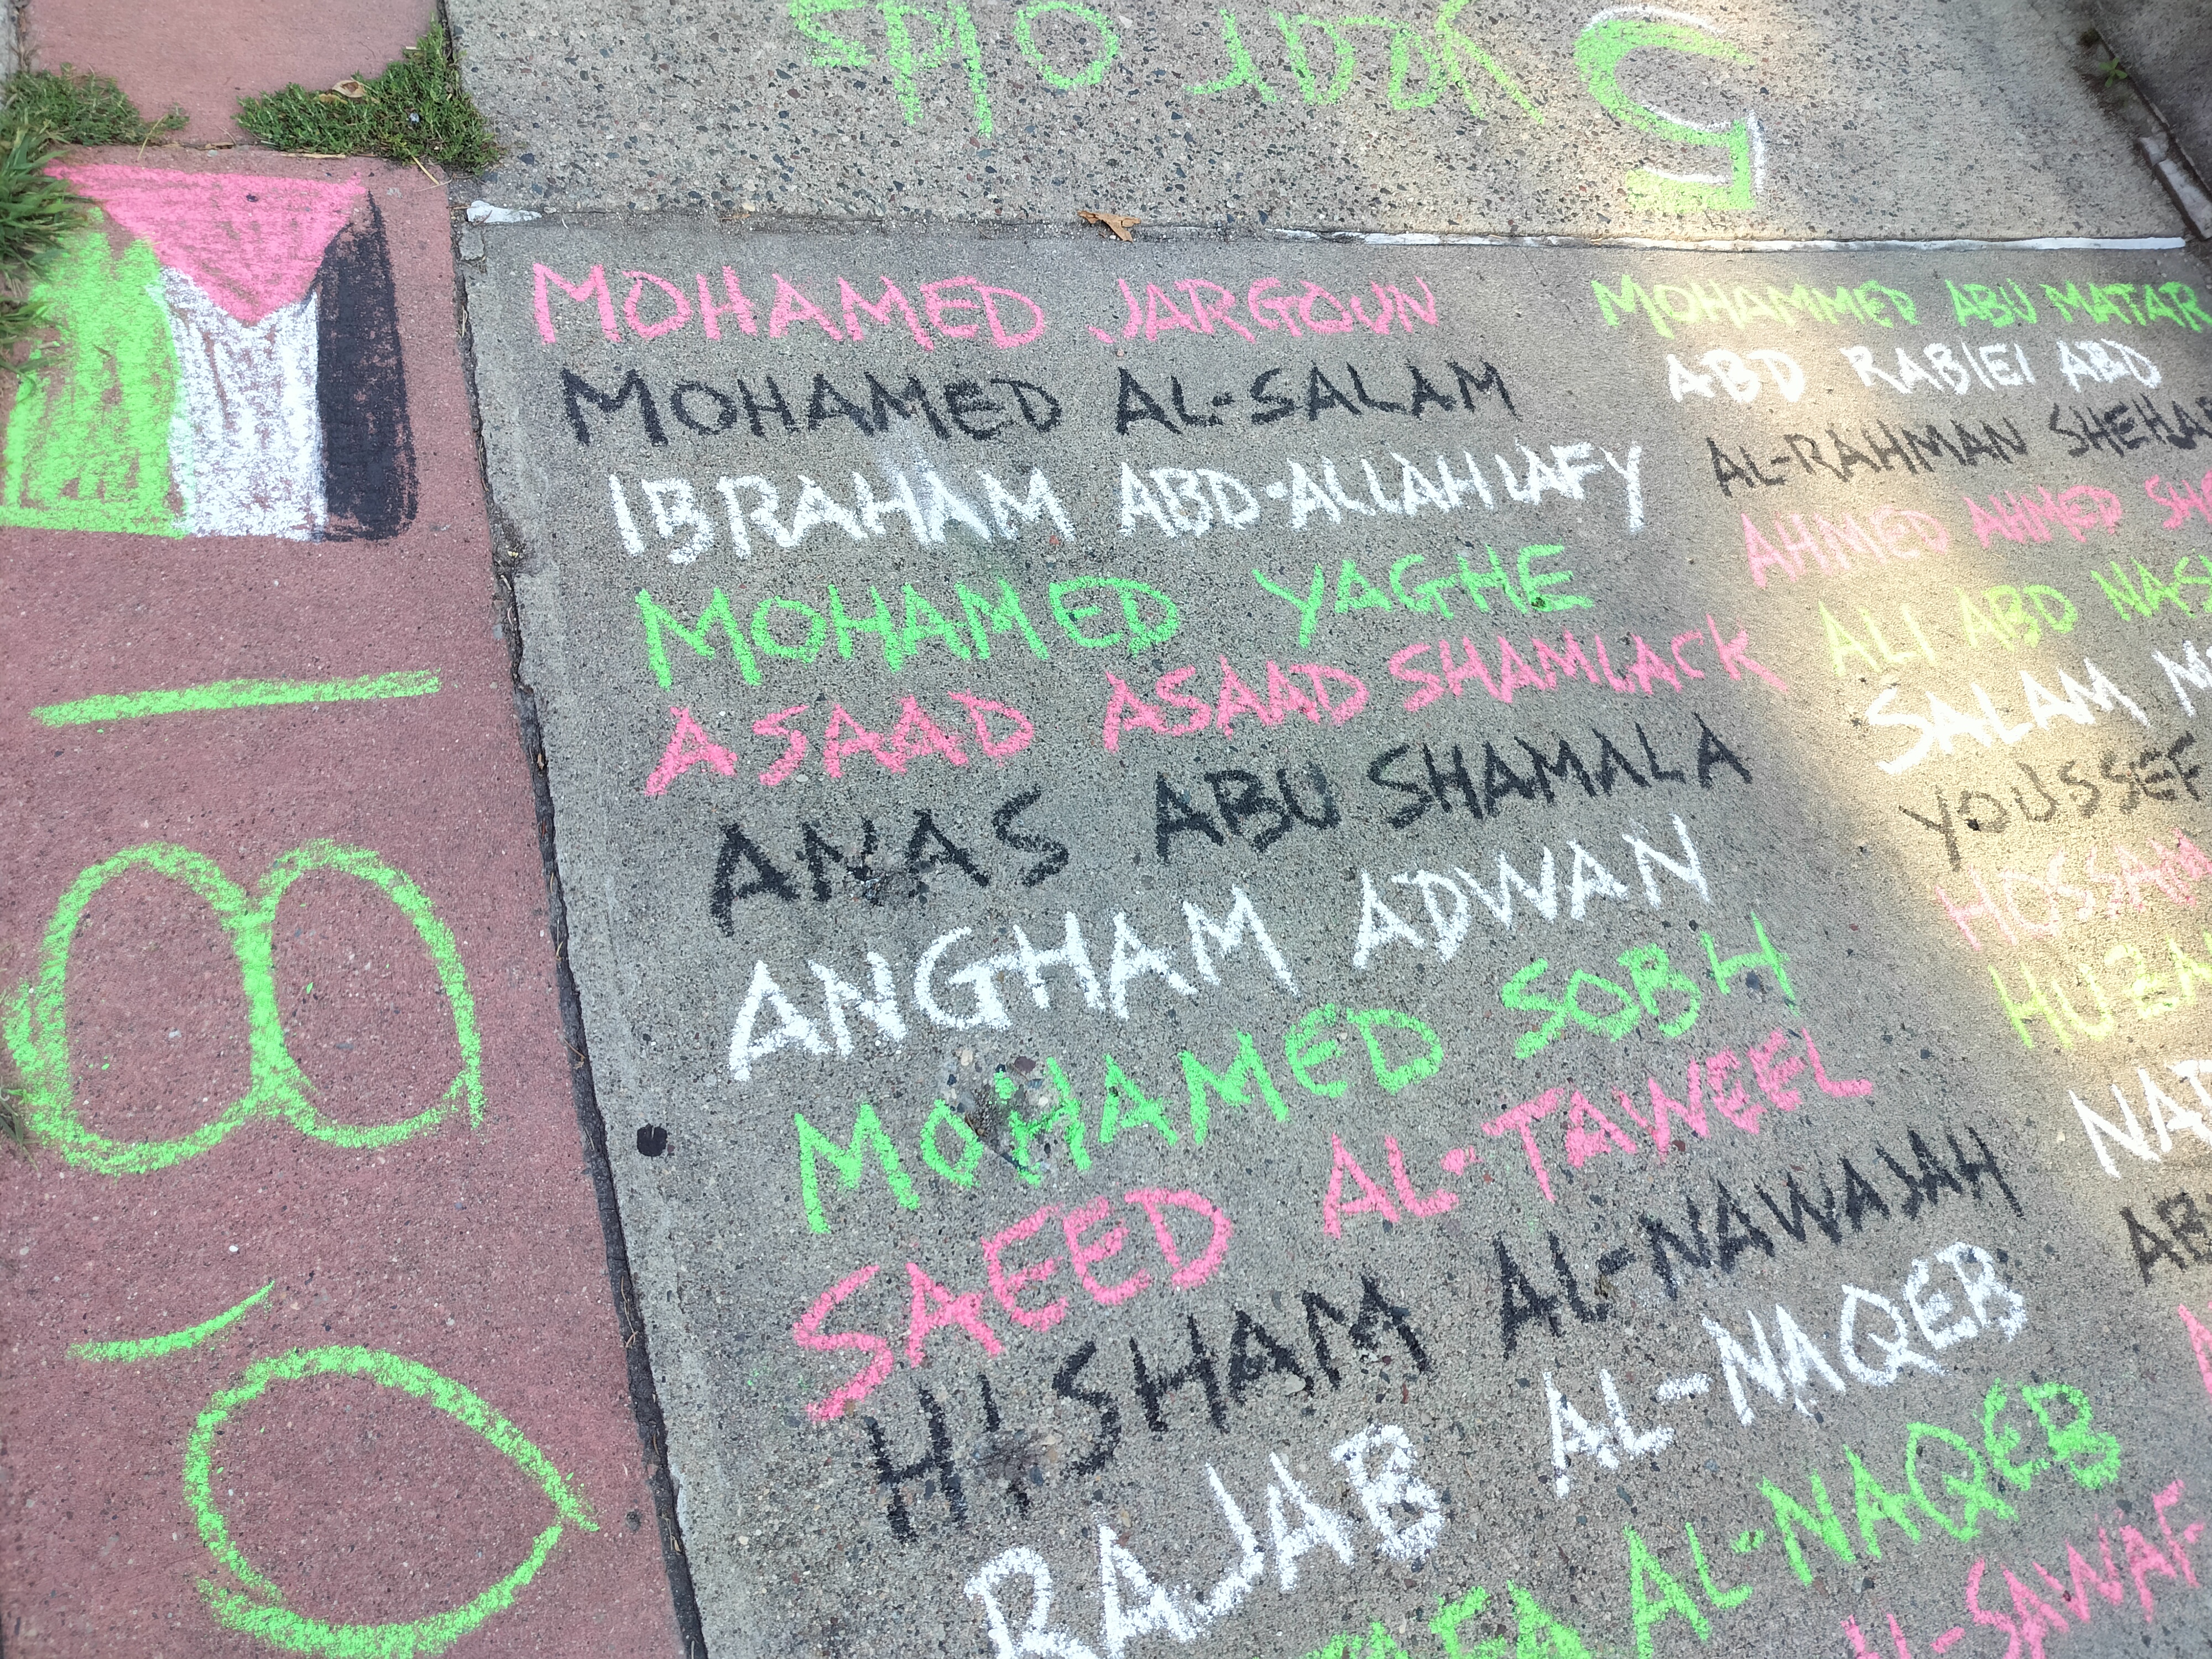 5 year olds
MOHAMED JARGOUN
MOHAMED AL-SALAM
IBRAHAM ABD-ALLAH LAFY
MOHAMED YAGHE
ASAAD ASAAD SHAMLACK
ANAS ABU SHAMALA
ANGHAM ADWAN
MOHAMED SOBH
SAEED AL-TAWEEL
HISHAM AL-NAWAJAH
RAJAB AL-NAQEB
AL-NAQEB
MOHAMMED ABU MATAR
ABD RABIEI ABD
AL-RAHMAN
AHMED AHMED
ALI ABD
SALAM
YOUSSEF